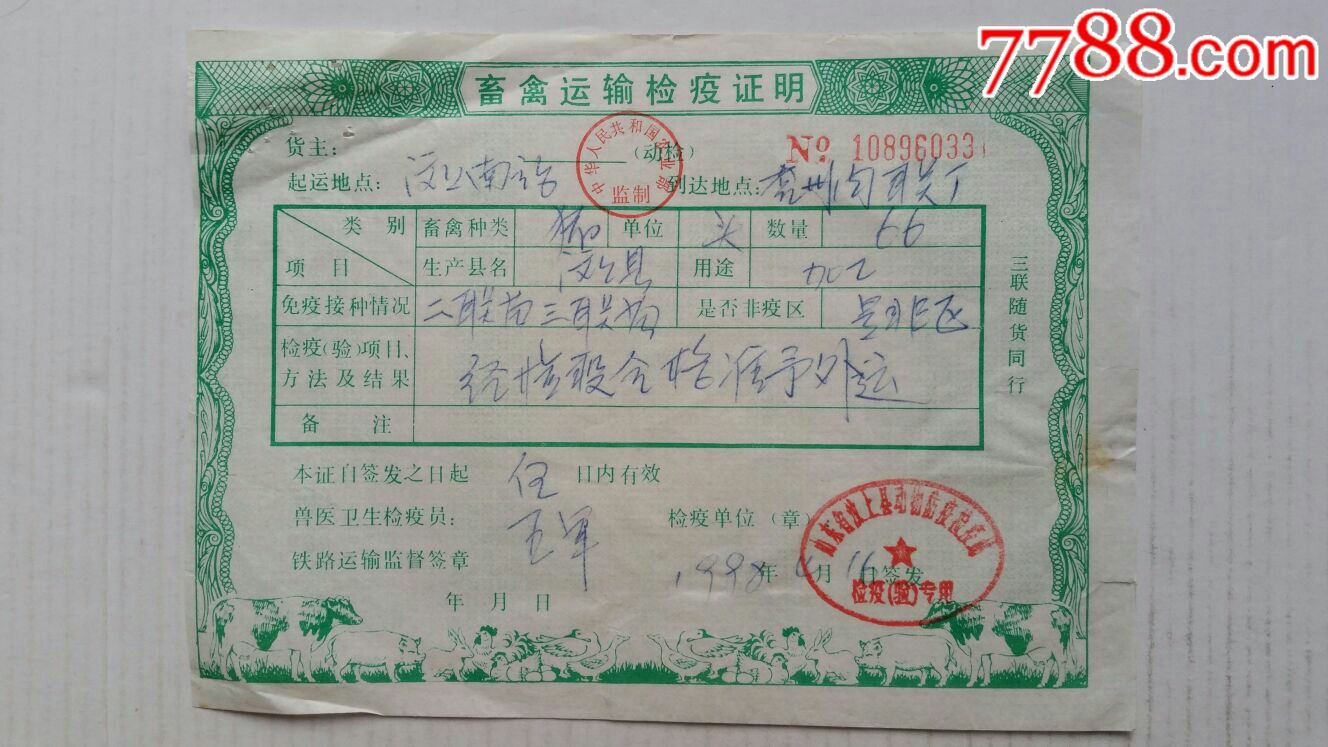 7788.com
畜禽运输检疫证明
货主: (动检) No 10896033
起运地点: 汶上南站 到达地点: 肉联厂
中华人民共和国农业部
监制
类别 畜禽种类 猪 单位 头 数量 66
项目 生产县名 汶上县 用途 加工
免疫接种情况 二联苗三联苗 是否非疫区 是非区
检疫(验)项目、
方法及结果 经检疫合格准予外运
备注
三联随货同行
本证自签发之日起 伍 日内有效
兽医卫生检疫员: 王军 检疫单位(章)
铁路运输监督签章 1998年 月16日签发
年 月 日
山东省汶上县动物防疫
检疫(验)专用